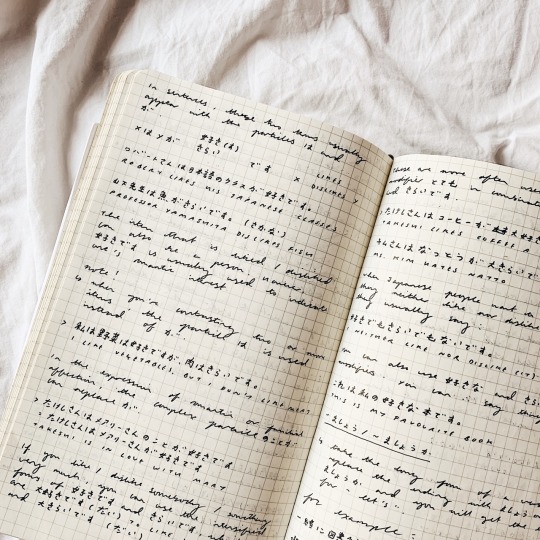 in sentences, these two terms usually
appear with the particles は and
が.
X は Y が 好き(な) です X LIKES Y
きらい DISLIKES
ロバートさんは日本語のクラスが好きです。
ROBERT LIKES HIS JAPANESE CLASSES
山下先生は魚がきらいです。(さかな)
PROFESSOR YAMASHITA DISLIKES FISH
the item that is liked / disliked
can also be a person. however,
好きです is usually used to indicate
one's romantic interest.
note!
when you're contrasting two or more
items, the particle は is used
instead of が.
> 私は野菜は好きですが、肉はきらいです。
I LIKE VEGETABLES, BUT I DON'T LIKE MEAT
in the expression of romantic or familial
affection, the complex particle のことが
can replace が.
> たけしさんはメアリーさんのことが好きです。
= たけしさんはメアリーさんが好きです。
TAKESHI IS IN LOVE WITH MARY
if you like / dislike somebody / something
very much, you can use the intensified
forms of 好きです and きらいです,
are 大好きです (だい) TO LIKE
and 大きらいです (だい)
these are more often used
modifier とても in
and きらいです.
たけしさんはコーヒーが大好き
TAKESHI LIKES COFFEE A
キムさんはなっとうが大きらいで
MS. KIM HATES NATTO
Japanese people want to
they neither like nor dislike
they usually say:
好きでもきらいでもないです。
I NEITHER LIKE NOR DISLIKE IT
can also use 好きな and きら
modifiers. you can say things
これは私の好きな本です。
THIS IS MY FAVOURITE BOOK
~ましょう / ~ましょうか
take the long form of a
replace the ending with ましょう
か and you will get the
for "let's".
for example:
一緒に図